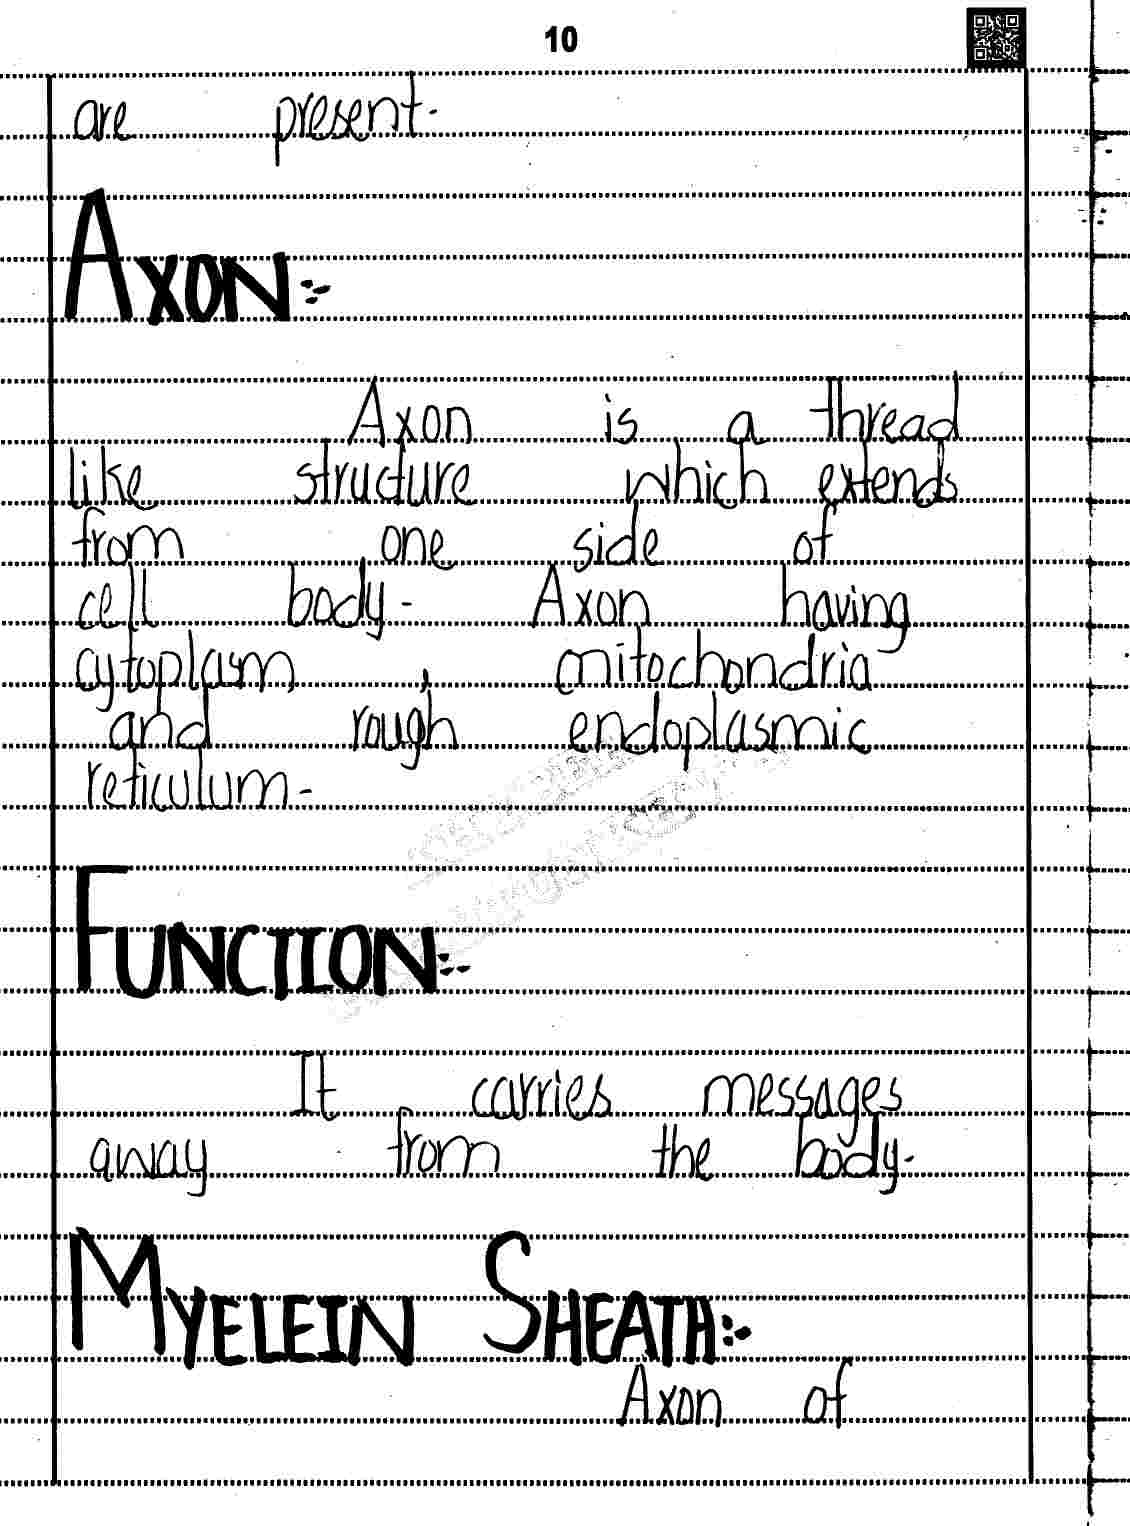 10
are present.
AXON:-
Axon is a thread
like structure which extends
from one side of
cell body. Axon having
cytoplasm, mitochondria
and rough endoplasmic
reticulum.
FUNCTION:-
It carries messages
away from the body.
MYELEIN SHEATH:-
Axon of